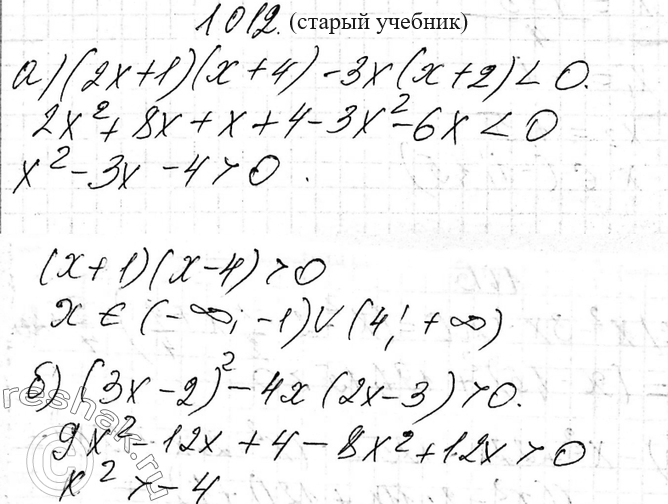 1012. (старый учебник)
а) (2x+1)(x+4)-3x(x+2)<0.
2x²+8x+x+4-3x²-6x<0
x²-3x-4>0.
(x+1)(x-4)>0
x∈(-∞;-1)∪(4;+∞)
б) (3x-2)²-4x(2x-3)>0.
9x²-12x+4-8x²+12x>0
x²>-4